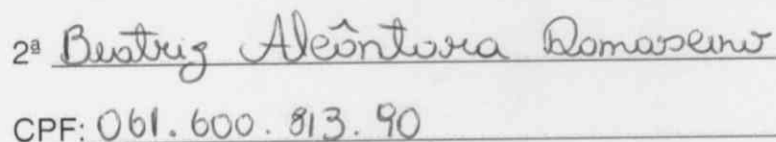 2ª Beatriz Alcântara Damasceno
CPF: 061.600.813.90